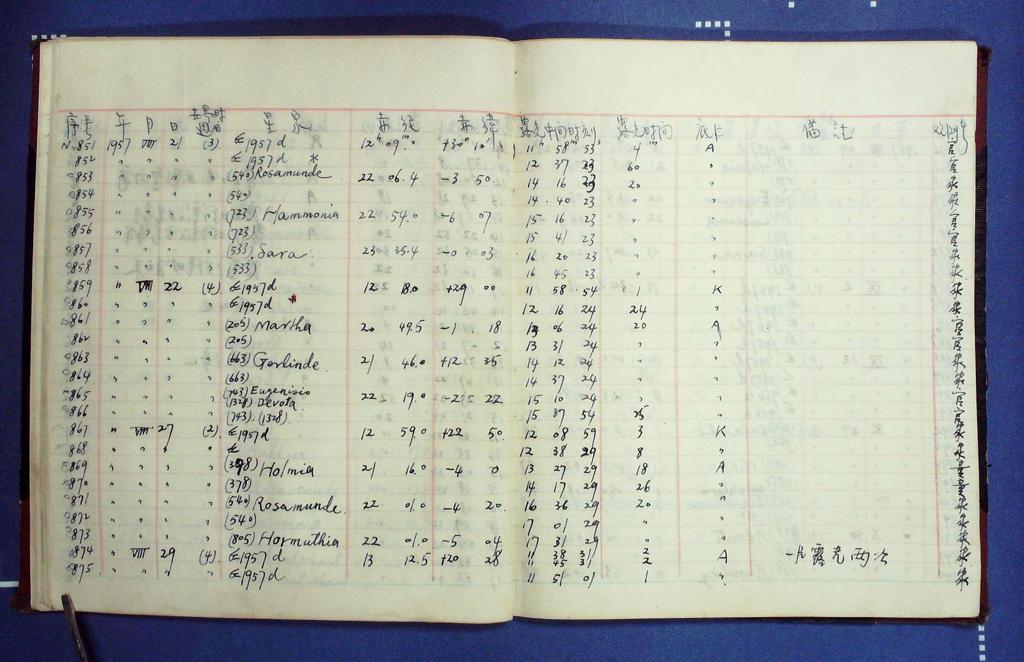 序号 年 月 日 世界时週日 星象 赤经 赤纬 露光中间时刻 露光时间 底片 备註 观测者
No 851 1957 VIII 21 (3) ∈ 1957 d 12ʰ 09.ᵐ +30° 11ʰ 58ᵐ 53ˢ 4ᵐ A
852 〃 〃 〃 〃 ∈ 1957 d * 12 37 23 60 〃
853 〃 〃 〃 〃 (540) Rosamunde 22 06.4 -3 50. 14 16 23 20 〃
854 〃 〃 〃 〃 (540) 14 40 23 〃 〃
855 〃 〃 〃 〃 (723) Hammonia 22 54.0 -6 07 15 16 23 〃 〃
856 〃 〃 〃 〃 (723) 15 41 23 〃 〃
857 〃 〃 〃 〃 (533) Sara 23 35.4 -0 03 16 20 23 〃 〃
858 〃 〃 〃 〃 (533) 16 45 23 〃 〃
859 〃 VIII 22 (4) ∈ 1957 d 12 18.0 +29 00 11 58 54 1 K
860 〃 〃 〃 〃 ∈ 1957 d * 12 16 24 24 〃
861 〃 〃 〃 〃 (205) Martha 20 49.5 -1 18 13 06 24 20 A
862 〃 〃 〃 〃 (205) 13 31 24 〃 〃
863 〃 〃 〃 〃 (663) Gerlinde 21 46.0 +12 35 14 12 24 〃 〃
864 〃 〃 〃 〃 (663) 14 37 24 〃 〃
865 〃 〃 〃 〃 (743) Eugenisis (1328) Devota 22 19.0 22 15 10 24 〃 〃
866 〃 〃 〃 〃 (743). (1328) 15 37 54 25 〃
867 〃 VIII 27 (2) ∈ 1957 d 12 59.0 +22 50. 12 08 59 3 K
868 〃 〃 〃 〃 12 38 29 8 〃
869 〃 〃 〃 〃 (378) Holmia 21 16.0 -4 0 13 27 29 18 A
870 〃 〃 〃 〃 (378) 14 17 29 26 〃
871 〃 〃 〃 〃 (540) Rosamunde 22 01.0 -4 20. 16 36 29 20 〃
872 〃 〃 〃 〃 (540) 17 01 29 〃 〃
873 〃 〃 〃 〃 (805) Hormuthia 22 01.0 -5 04 17 31 29 〃 〃
874 〃 VIII 29 (4) ∈ 1957 d 13 12.5 +20 28 11 38 31 2 A 一片露光两次
11 45 31 2
875 〃 〃 〃 〃 ∈ 1957 d 11 51 01 1 〃